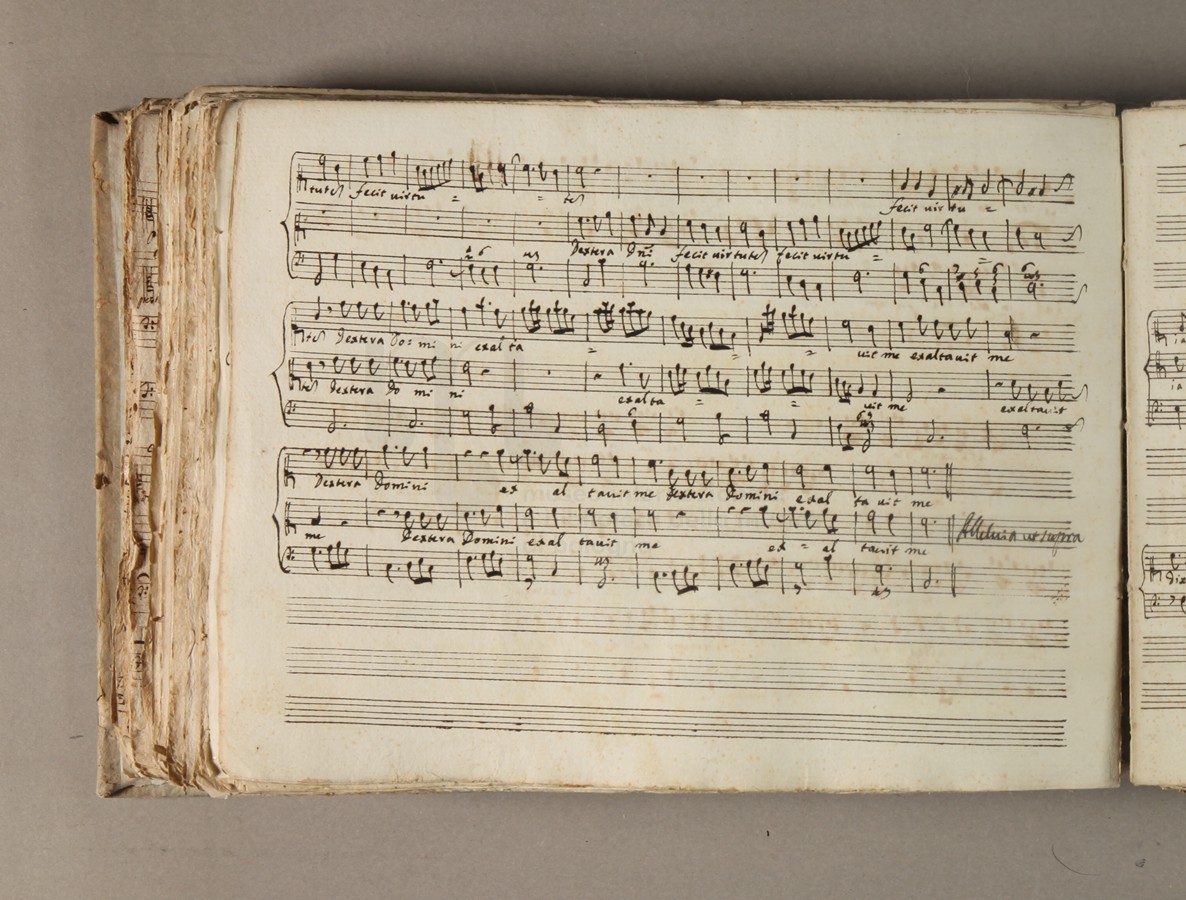 tutes fecit virtu = = tes fecit virtu =
Dextera Dni fecit virtutes fecit virtu = =
tes dextera Do= mi ni exalta = = = vit me exaltavit me
tes dextera Do mi ni exalta = = vit me exaltavit
Dextera Domini ex al tavit me dextera Domini exal ta vit me
me Dextera Domini exal tavit me ex = al tavit me Alleluia ut supra